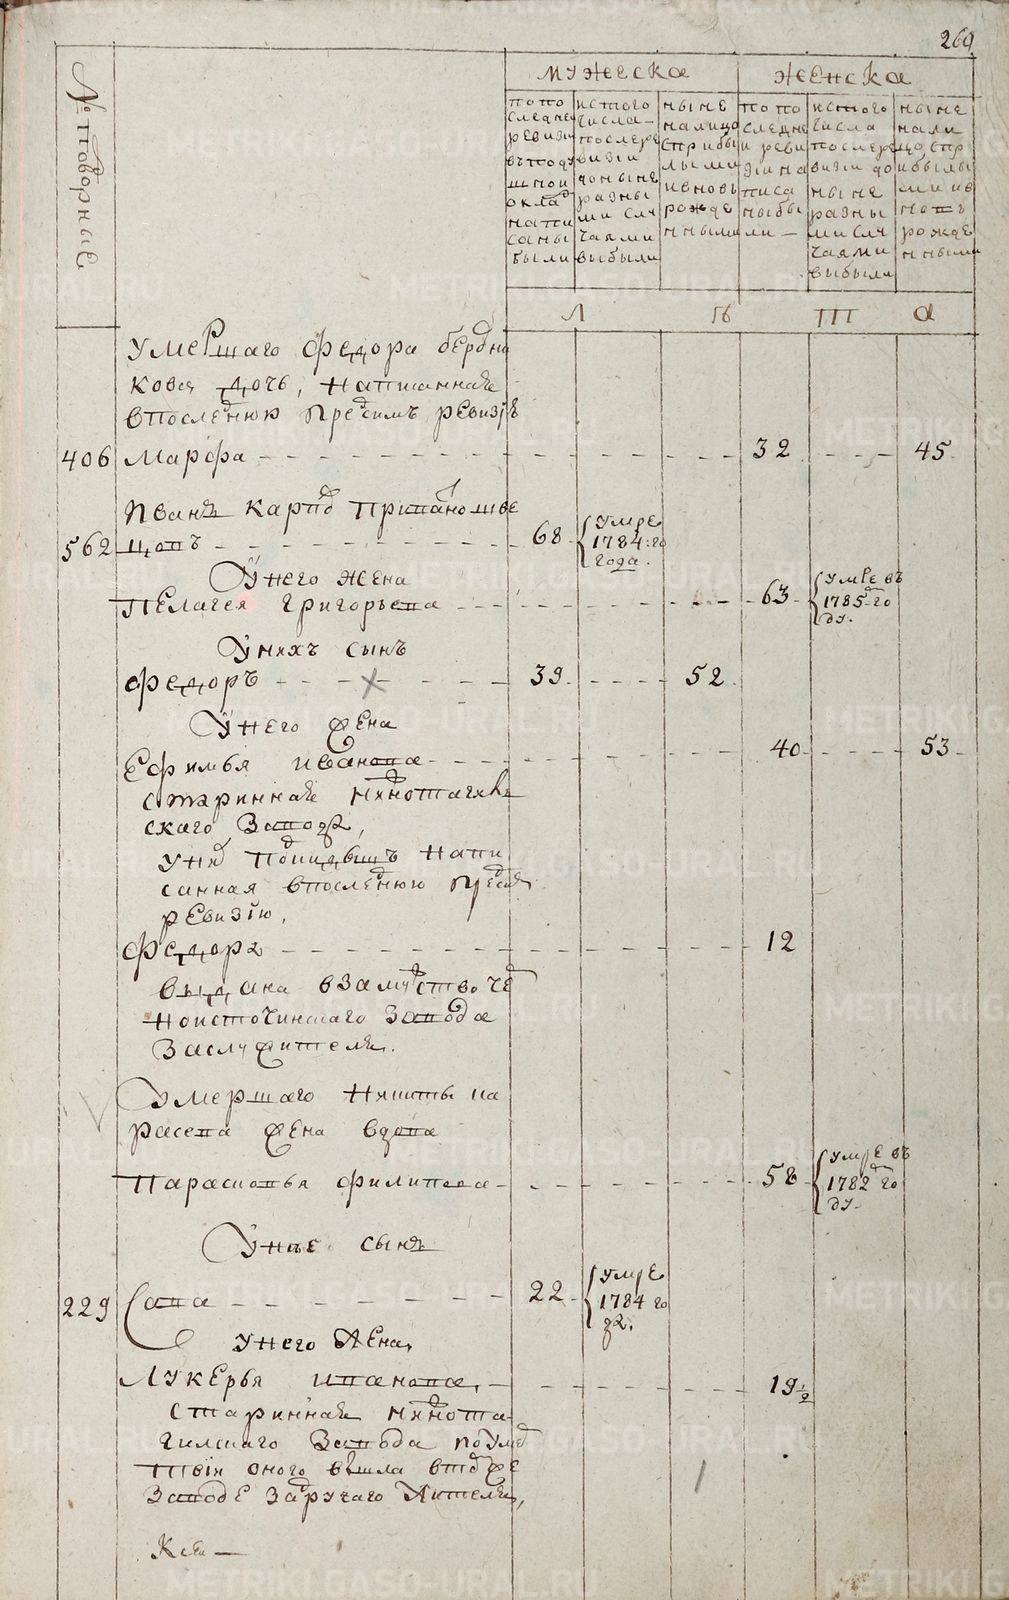 269
№ поворные
мужеска
женска
по последней ревизии в подушной оклад написаны были
ис того числа после ревизии до ныне разными случаями выбыли
ныне налицо с прибылыми и вновь рожденными
по последней ревизии написаны были
ис того числа после ревизии до ныне разными случаями выбыли
ныне налицо с прибылыми и вновь рожденными
Л ѣ т а
умершаго федора бердни
кова дочь, написанная
в последнюю пред симъ ревизiю
406 марфа 32 45
иванъ карпов
562 68 умре 1784: го года.
У него жена
пелагея григорьева 63 умре въ 1785 го ду.
У нихъ сынъ
федоръ 39 52
У него жена
Ефимья иванова 40 53
стариннаго нижнотагиль
скаго завода,
у них дочь напи
санная в последнюю пред сим
ревизiю,
федора 12
выдана в замужство че
рноисточинскаго завода
за служителя.
Умершаго никиты ка
расева жена вдова
парасковья филипова 58 умре въ 1782 го ду.
У нее сынъ
229 Сава 22 умре 1784 го да.
у него жена,
Лукерья иванова, 19½
старинная нижнота
гилскаго завода по уме
ртвiи оного вышла в том же
заводе за другаго жителя,